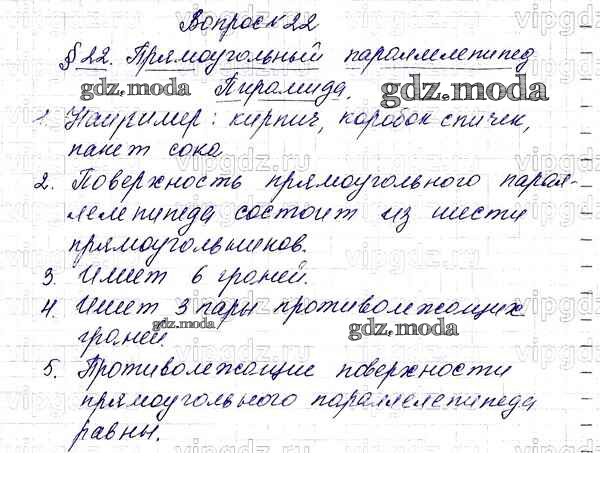 Вопрос к 22
§ 22. Прямоугольный параллелепипед
Пирамида.
gdz.moda gdz.moda
1. Например: кирпич, коробок спичек,
пакет сока
2. Поверхность прямоугольного парал-
лелепипеда состоит из шести
прямоугольников.
3. Имеет 6 граней.
4. Имеет 3 пары противолежащих
граней
gdz.moda gdz.moda
5. Противолежащие поверхности
прямоугольного параллелепипеда
равны.